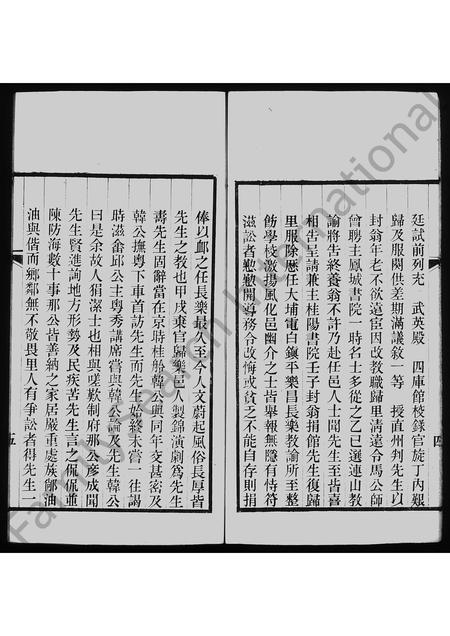 廷試前列充　武英殿　四庫館校錄官旋丁內艱
歸及服闋供差期滿議敘一等　授直州判先生以
封翁年老不欲遠宦因改教職歸里清遠令馬公師
曾聘主鳳城書院一時名士多從之乙巳選連山教
諭將告終養翁不許乃赴任邑人士聞先生至皆喜
相告呈請兼主桂陽書院壬子封翁捐館先生復歸
里服除歷任大埔電白鎮平樂昌長樂教諭所至整
飭學校激揚風化邑幽介之士皆舉報無隱有恃符
滋訟者懃懃開導務合改悔或貧乏不能自存則捐
俸以卹之任長樂最久至今人文蔚起風俗長厚皆
先生之教也甲戌棄官歸樂邑人製錦演劇為先生
壽先生固辭當在京時桂舲韓公與同年交甚密及
韓公撫粵下車首訪先生而先生始終未嘗一往謁
時滋畬邱公主粵秀講席嘗與韓公論及先生韓公
曰是余故人狷潔士也相與嗟歎制府那公彥成聞
先生賢進詢地方形勢及民疾苦先生言之侃侃並
陳防海數十事那公皆善納之家居嚴重處族鄰油
油與偕而鄉鄰無不敬畏里人有爭訟者得先生一
四
五
FamilySearch International